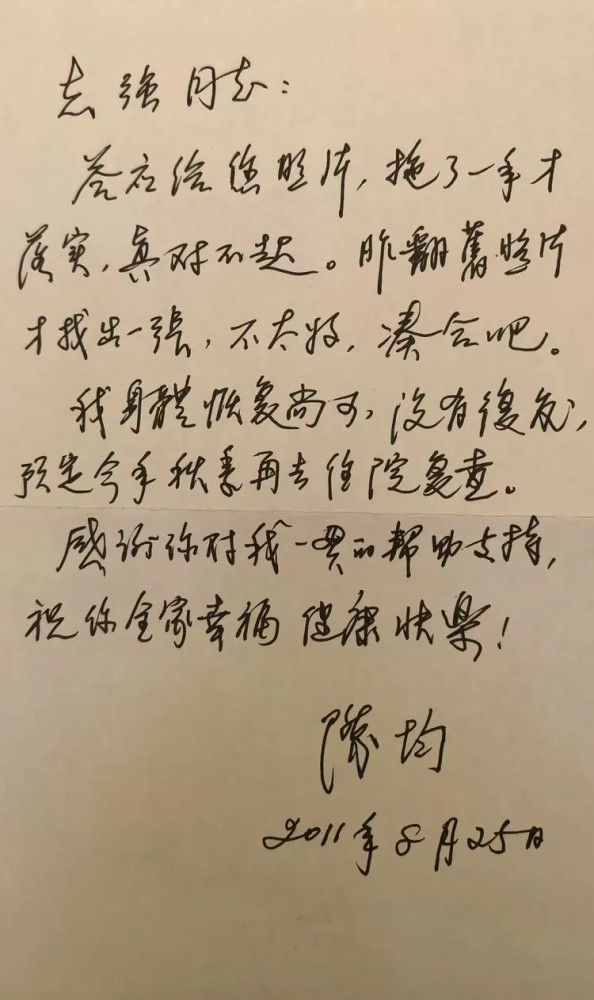 志强同志：
答应给您照片，拖了一年才
落实，真对不起。昨翻舊照片
才找出一張，不太好，凑合吧。
我身體恢复尚可，没有復发，
预定今年秋季再去住院复查。
感谢你对我一贯的帮助支持，
祝你全家幸福健康快樂！
均
2011年8月25日